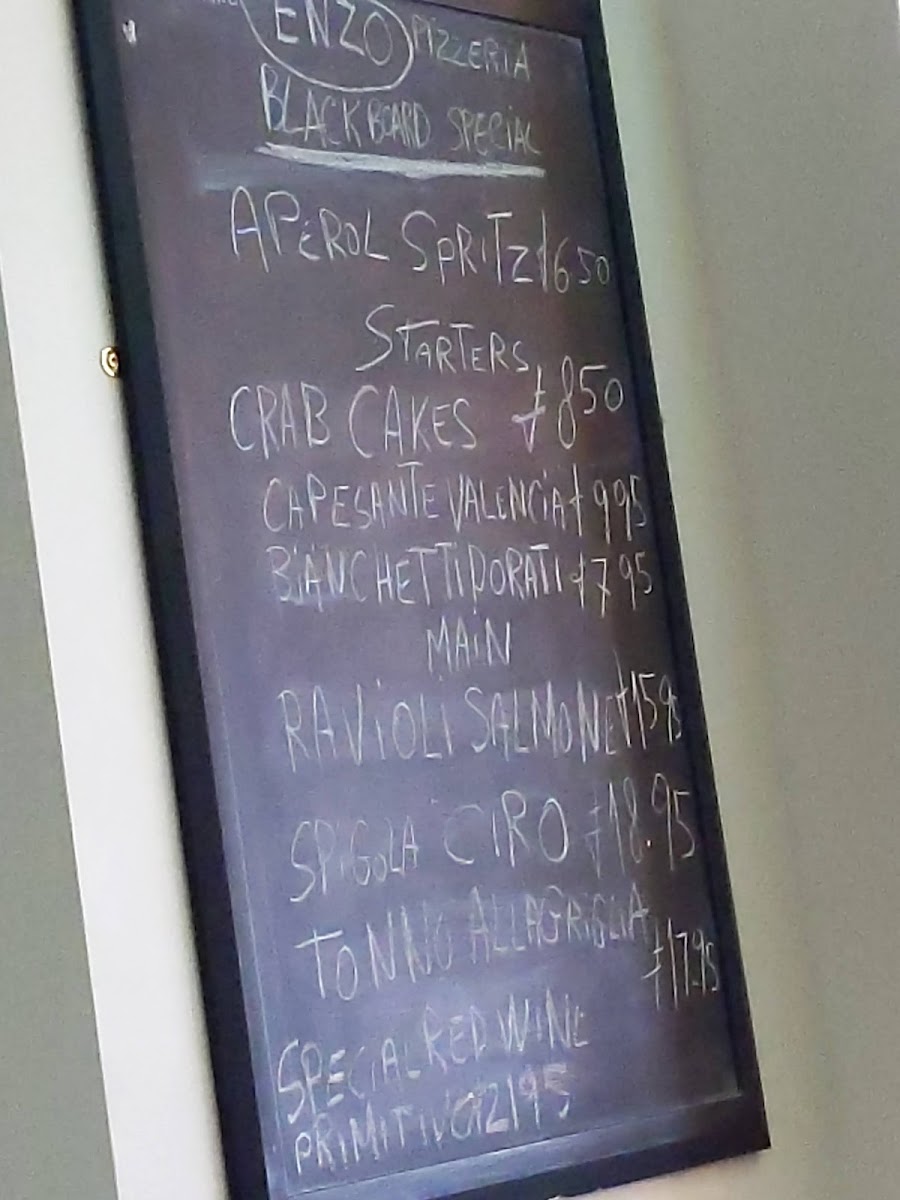 ENZO PIZZERIA
BLACKBOARD SPECIAL
APEROL SPRITZ £6 50
STARTERS
CRAB CAKES £850
CAPESANTE VALENCIA £995
BIANCHETTI DORATI £795
MAIN
RAVIOLI SALMONE £1595
SPIGOLA CIRO £18.95
TONNO ALLAGRIGLIA
£17.95
SPECIAL RED WINE
PRIMITIVO £2195